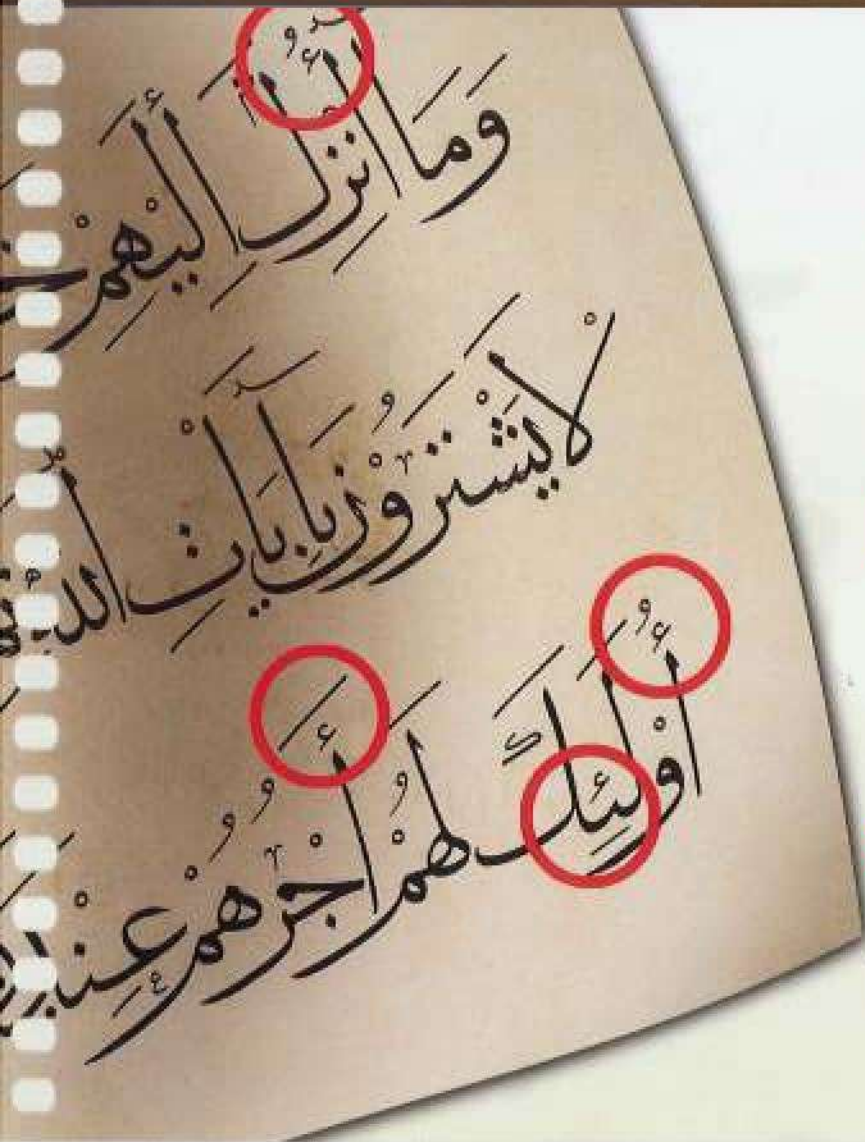 وَمَا أُنْزِلَ إِلَيْهِمْ
لَا يَشْتَرُونَ بِآيَاتِ اللَّهِ
أُوْلَئِكَ لَهُمْ أَجْرُهُمْ عِنْدَ